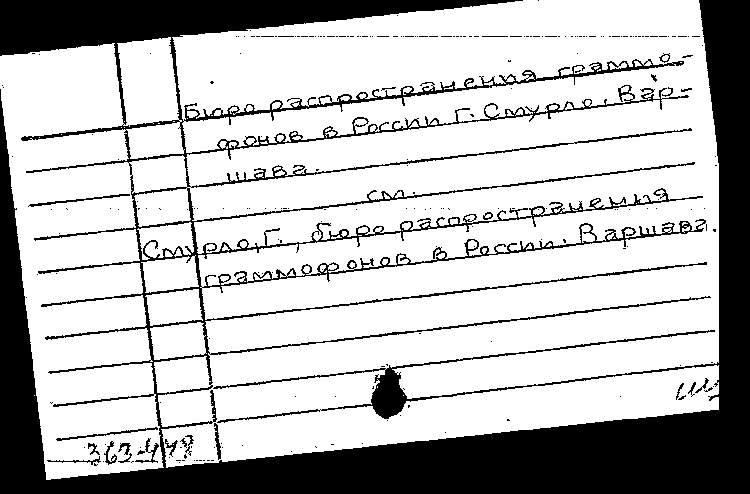 Бюро распространения граммо-
фонов в России Г. Смурло. Вар-
шава.
см.
Смурло, Г., бюро распространения
граммофонов в России. Варшава.
ш
363-448